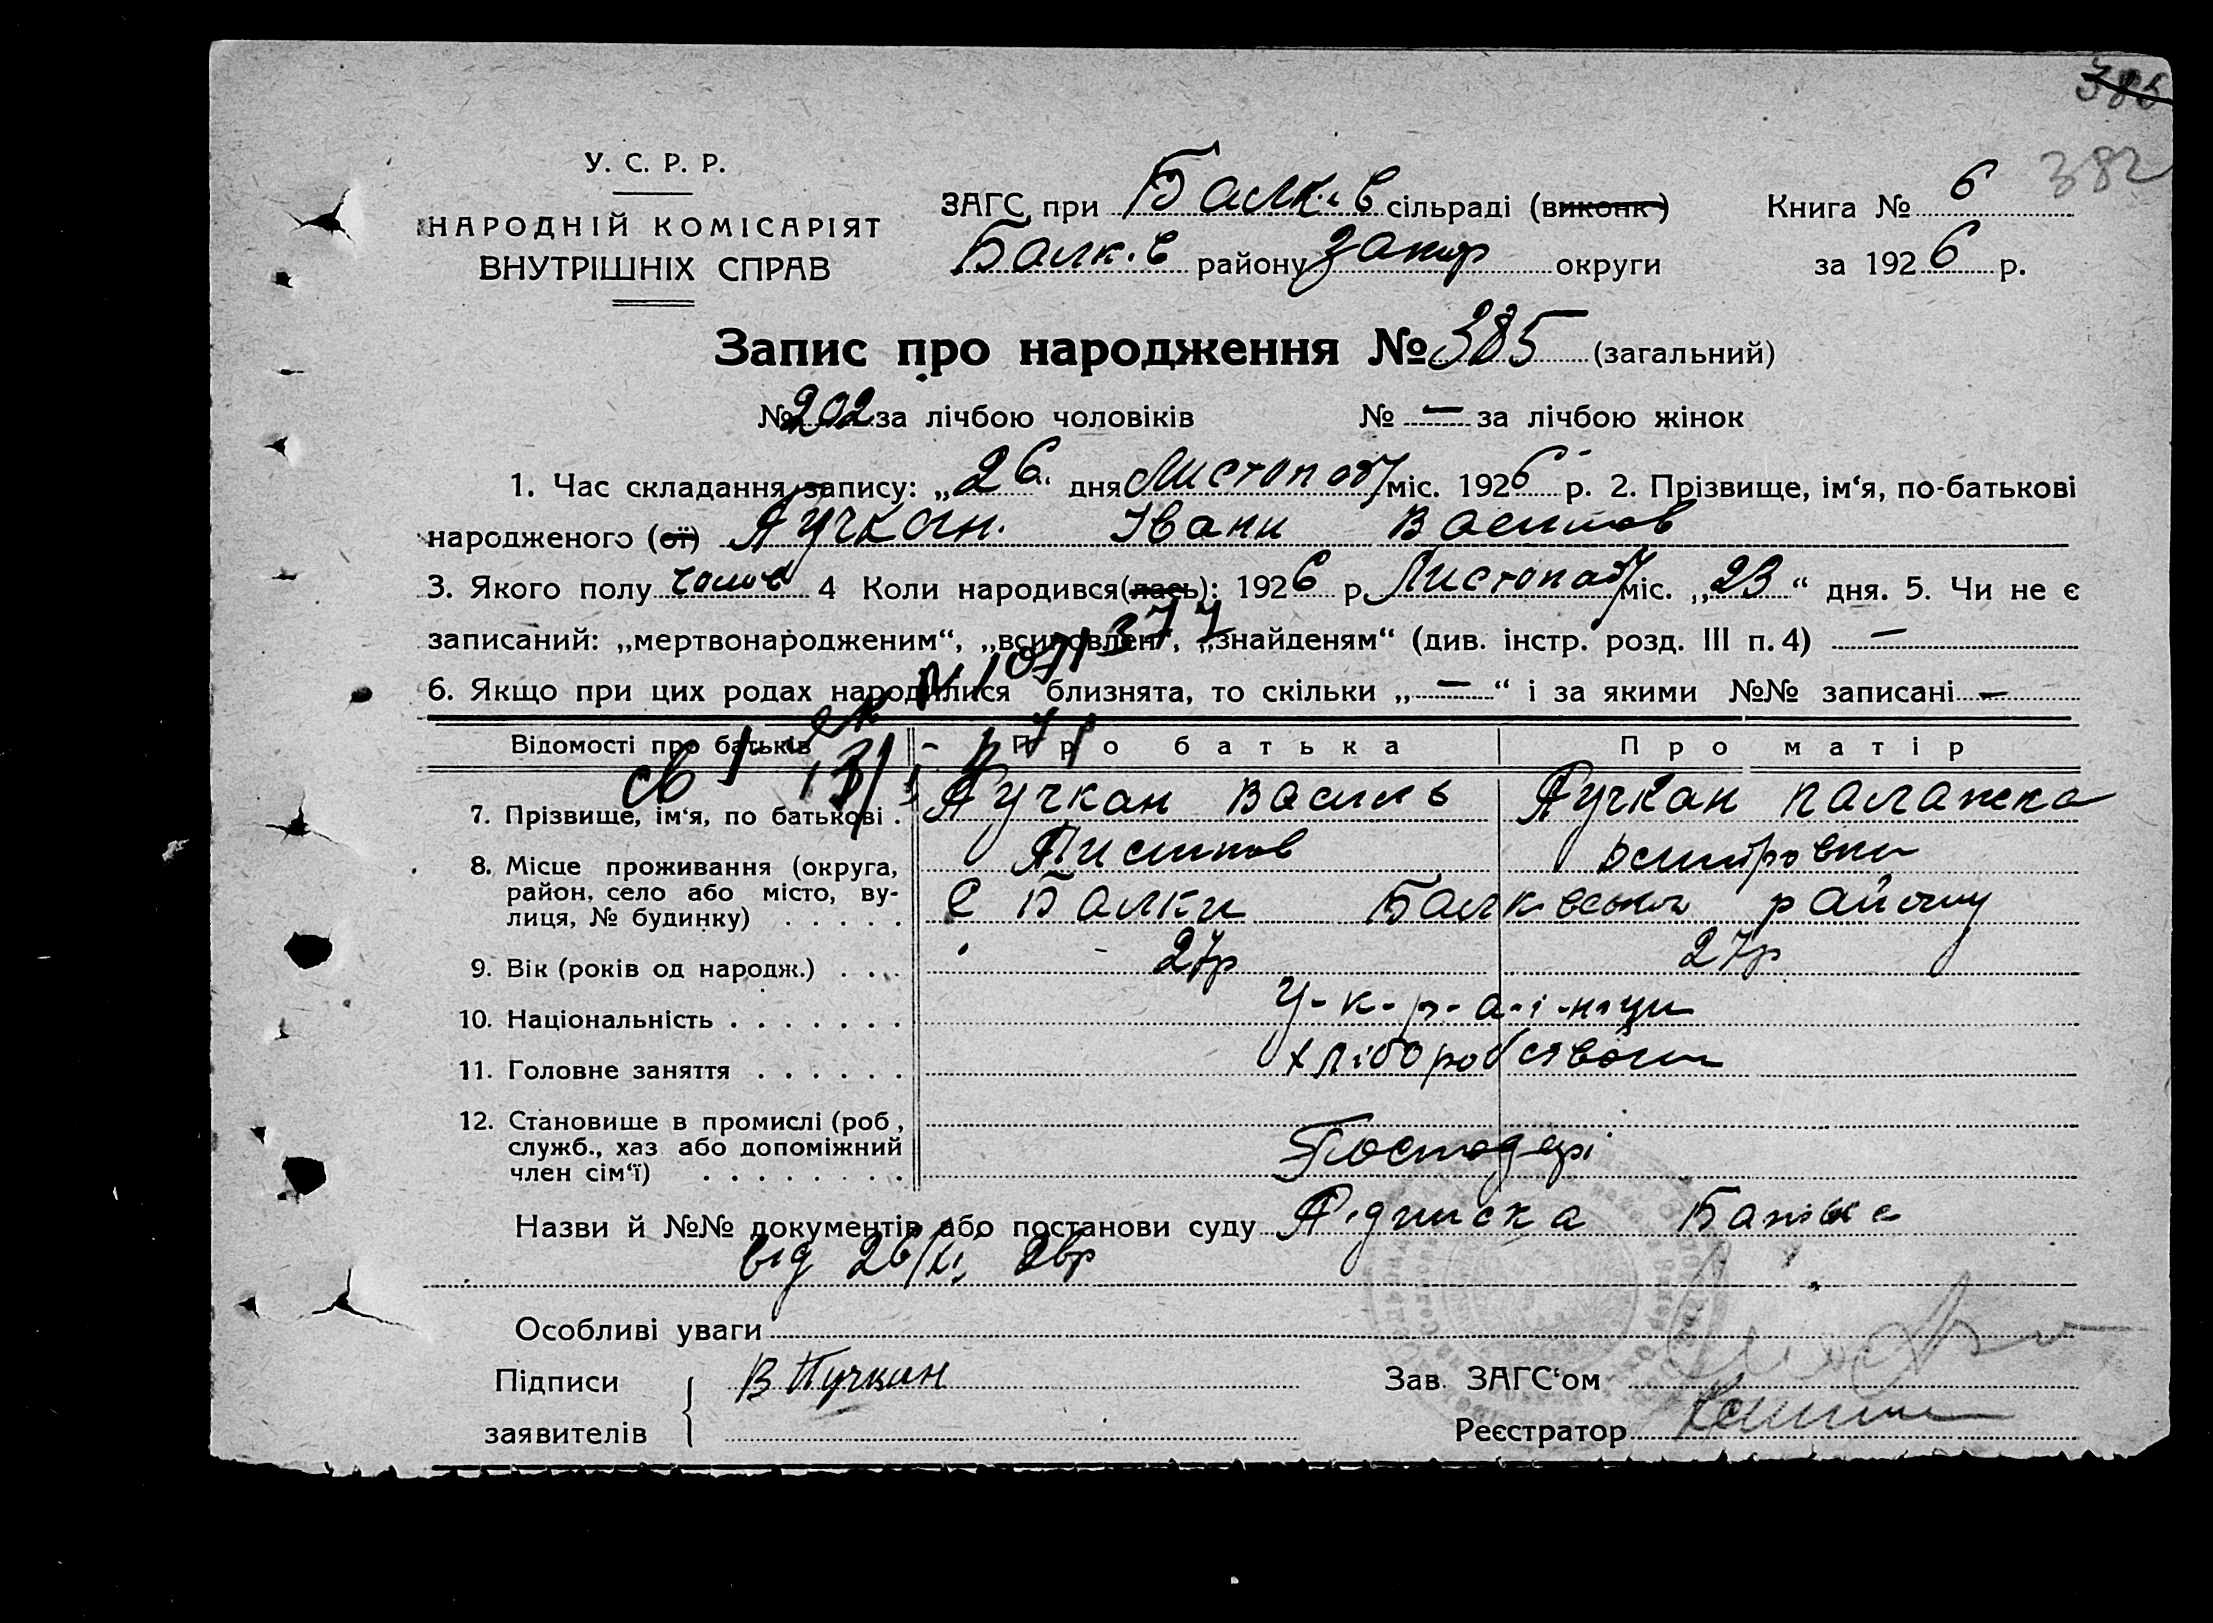 385
382
У. С. Р. Р.
НАРОДНІЙ КОМІСАРІЯТ
ВНУТРІШНІХ СПРАВ
ЗАГС при Балк.в сільраді (виконк) Книга № 6
Балк.в району Запор округи за 1926 р.
Запис про народження № 385 (загальний)
№ 202 за лічбою чоловіків № — за лічбою жінок
1. Час складання запису: „26“ дня Листопад міс. 1926 р. 2. Прізвище, ім‘я, по-батькові
народженого (ої) Пучкан. Івани Васильов
3. Якого полу чолов 4 Коли народився(лась): 1926 р. Листопад міс. „23“ дня. 5. Чи не є
записаний: „мертвонародженим“, „всиновлен“, „знайденям“ (див. інстр. розд. III п. 4) —
6. Якщо при цих родах народилися близнята, то скільки „—“ і за якими №№ записані —
Відомості про батьків Про батька Про матір
7. Прізвище, ім‘я, по батькові . Пучкан Василь Пучкан Палажка
8. Місце проживання (округа,
район, село або місто, вулиця, № будинку) . . . . . с Балки Балківського району
9. Вік (років од народж.) . . . 27р 27р
10. Національність . . . . . . . У-к-р-а-ї-нци
11. Головне заняття . . . . . . хліборобством
12. Становище в промислі (роб,
служб., хаз або допоміжний
член сім‘ї) . . . . . . . . Господарі
Назви й №№ документів або постанови суду Підписка Батька
від 26/XI 26р
Особливі уваги
Підписи В Пучкан Зав. ЗАГС‘ом
заявителів Реєстратор